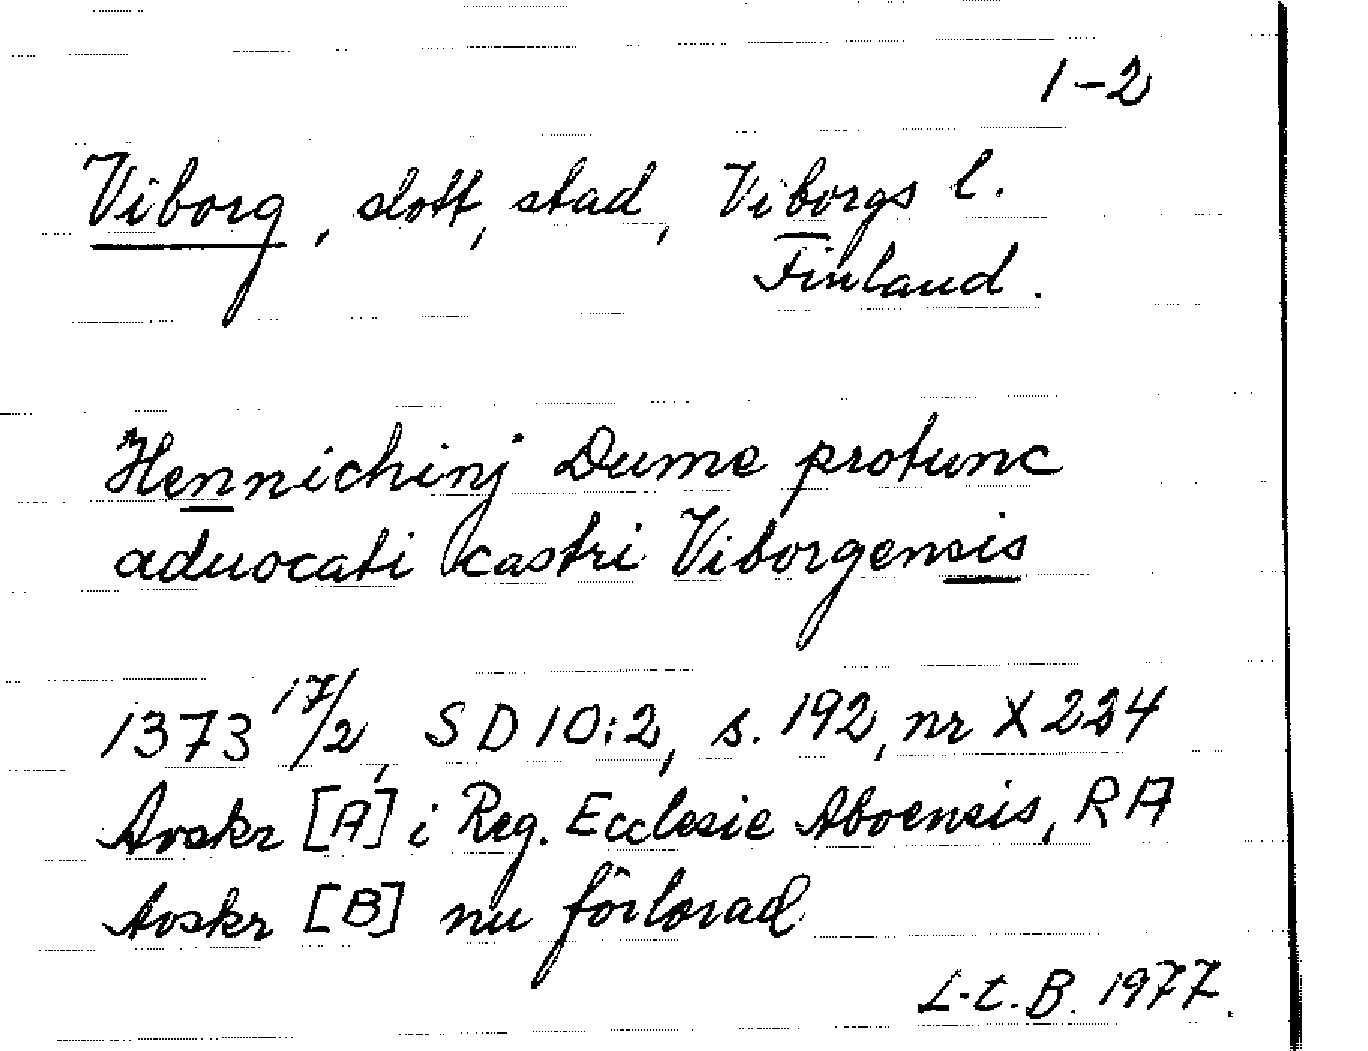 1-2
Viborg, slott, stad, Viborgs l.
Finland.
Hennichinj Dume protunc
aduocati castri Viborgensis
1373 17/2, SD 10:2, s. 192, nr X 224
Avskr [A] i Reg. Ecclesie Aboensis, RA
Avskr [B] nu förlorad
L-t. B. 1977.